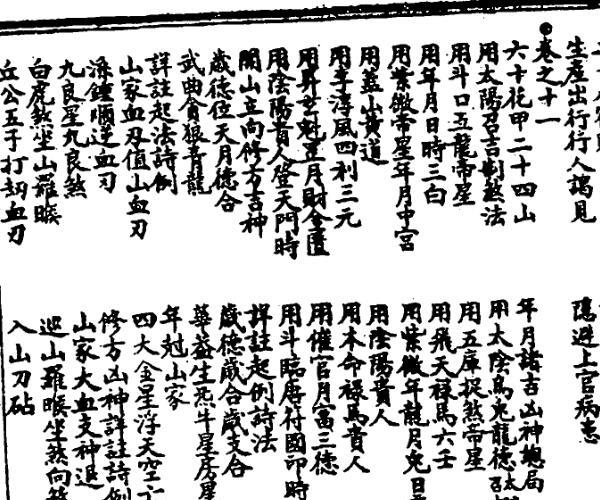 生產出行行人謁見
隱遯上官病患
卷之十一
六十花甲二十四山
年月諸吉凶神總局
用太陽召吉制煞法
用太陰烏兔龍德太
用斗口五龍帝星
用五庫捉煞帝星
用年月日時三白
用飛天祿馬六壬
用紫微帝星年月中宮
用紫微年龍月兔日
用蓋山黃道
用陰陽貴人
用李淳風四利三元
用本命祿馬貴人
用昇玄魁罡月財金匱
用催官月富三德
用陰陽貴人登天門時
用斗臨唐符國印時
開山立向修方吉神
詳註起例詩法
歲德位天月德合
歲德歲合歲支合
武曲貪狼青龍
華蓋生炁牛星房星
詳註起法詩例
年尅山家
山家血刃值山血刃
四大金星浮天空亡
添鍾順逆血刃
修方凶神詳註詩例
九良星九良煞
山家大血支神退
白虎煞坐山羅睺
巡山羅睺坐煞向
丘公五子打刼血刃
入山刀砧